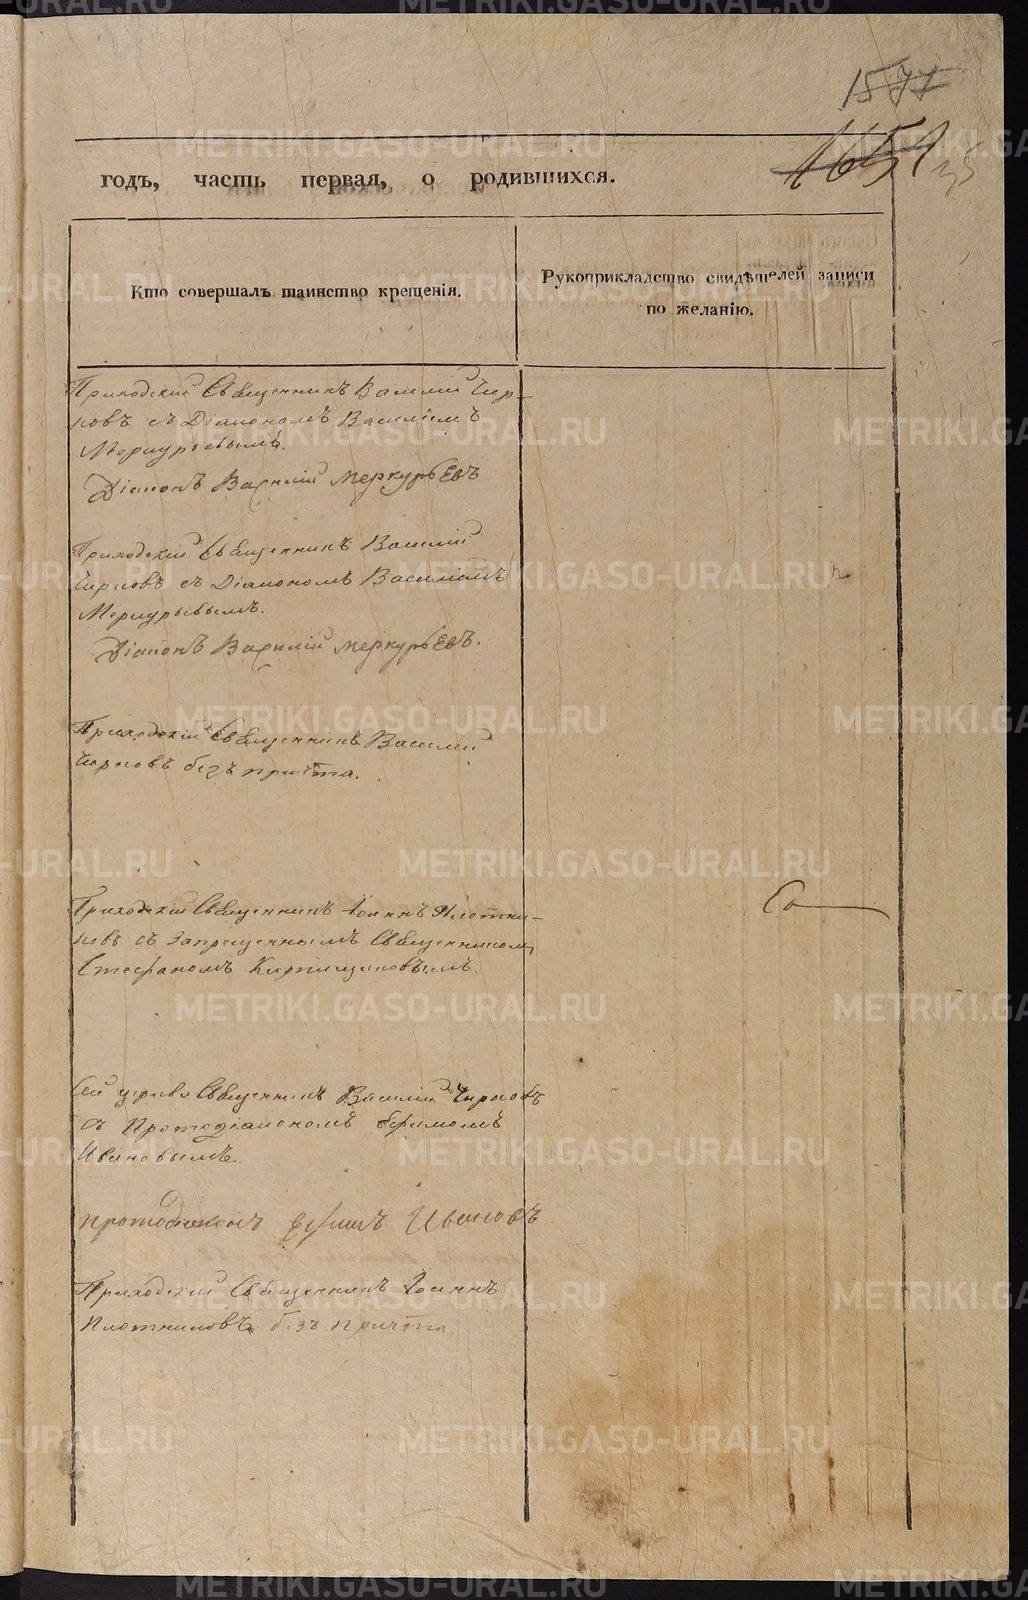 1577
1651
35
годъ, часть первая, о родившихся.
Кто совершалъ таинство крещенія.
Рукоприкладство свидѣтелей записи
по желанію.
Приходскій Священникъ Василій Чир-
ковъ съ Діакономъ Василіемъ
Меркурьевымъ.
Діаконъ Василій Меркурьевъ
Приходскій Священникъ Василій
Чирковъ съ Діакономъ Василіемъ
Меркурьевымъ.
Діаконъ Василій Меркурьевъ.
Приходскій Священникъ Василій
Чирковъ безъ причта.
Приходскій Священникъ Іоаннъ Плотни-
ковъ съ запрещеннымъ Священникомъ
Стефаномъ Кирпищиковымъ.
Со
Сей церкви Священникъ Василій Чирковъ
съ Протодіакономъ Ефимомъ
Ивановымъ.
Протодиаконъ Ефимъ Ивановъ
Приходскій Священникъ Іоаннъ
Плотниковъ безъ причта.
METRIKI.GASO-URAL.RU